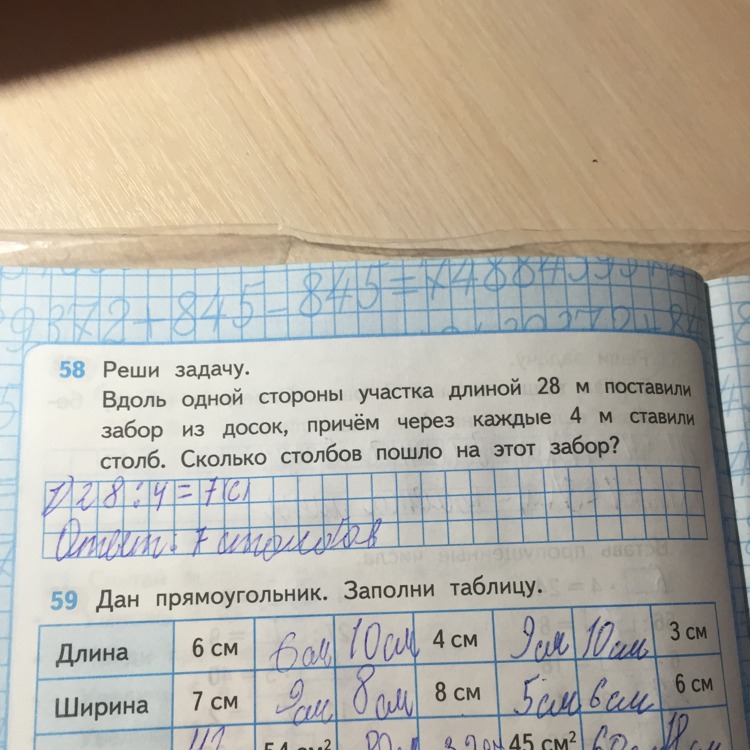 9372+845-845=7488
58 Реши задачу.
Вдоль одной стороны участка длиной 28 м поставили
забор из досок, причём через каждые 4 м ставили
столб. Сколько столбов пошло на этот забор?
1) 28:4=7(с)
Ответ: 7 столбов
59 Дан прямоугольник. Заполни таблицу.
Длина 6 см 6см 10см 4 см 9см 10см 3 см
Ширина 7 см 9см 8см 8 см 5см 6см 6 см
54 см² 45 см²